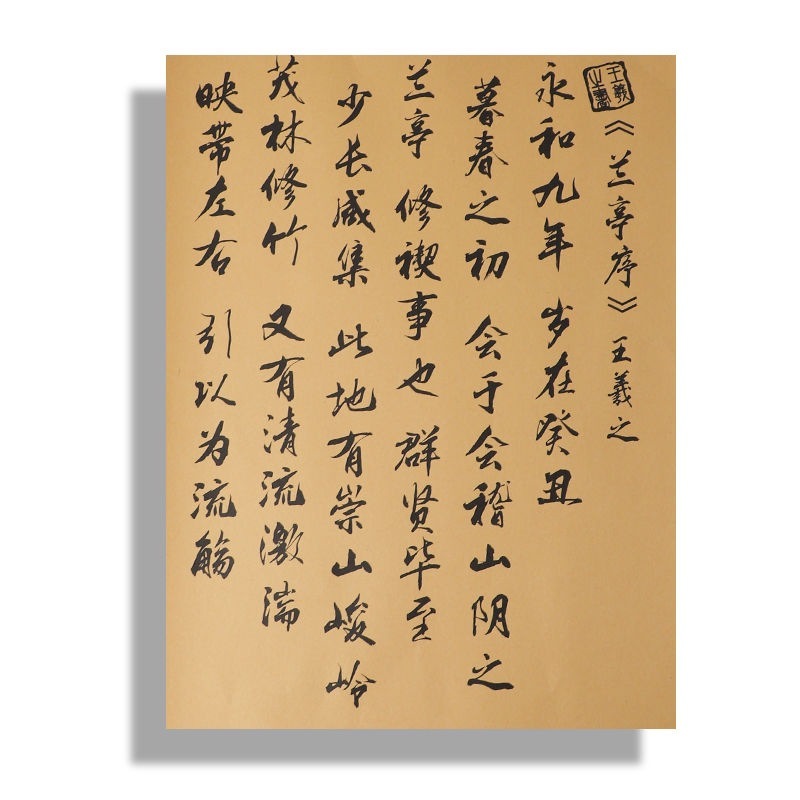 王羲之
《兰亭序》 王羲之
永和九年 岁在癸丑
暮春之初 会于会稽山阴之
兰亭 修禊事也 群贤毕至
少长咸集 此地有崇山峻岭
茂林修竹 又有清流激湍
映带左右 引以为流觞